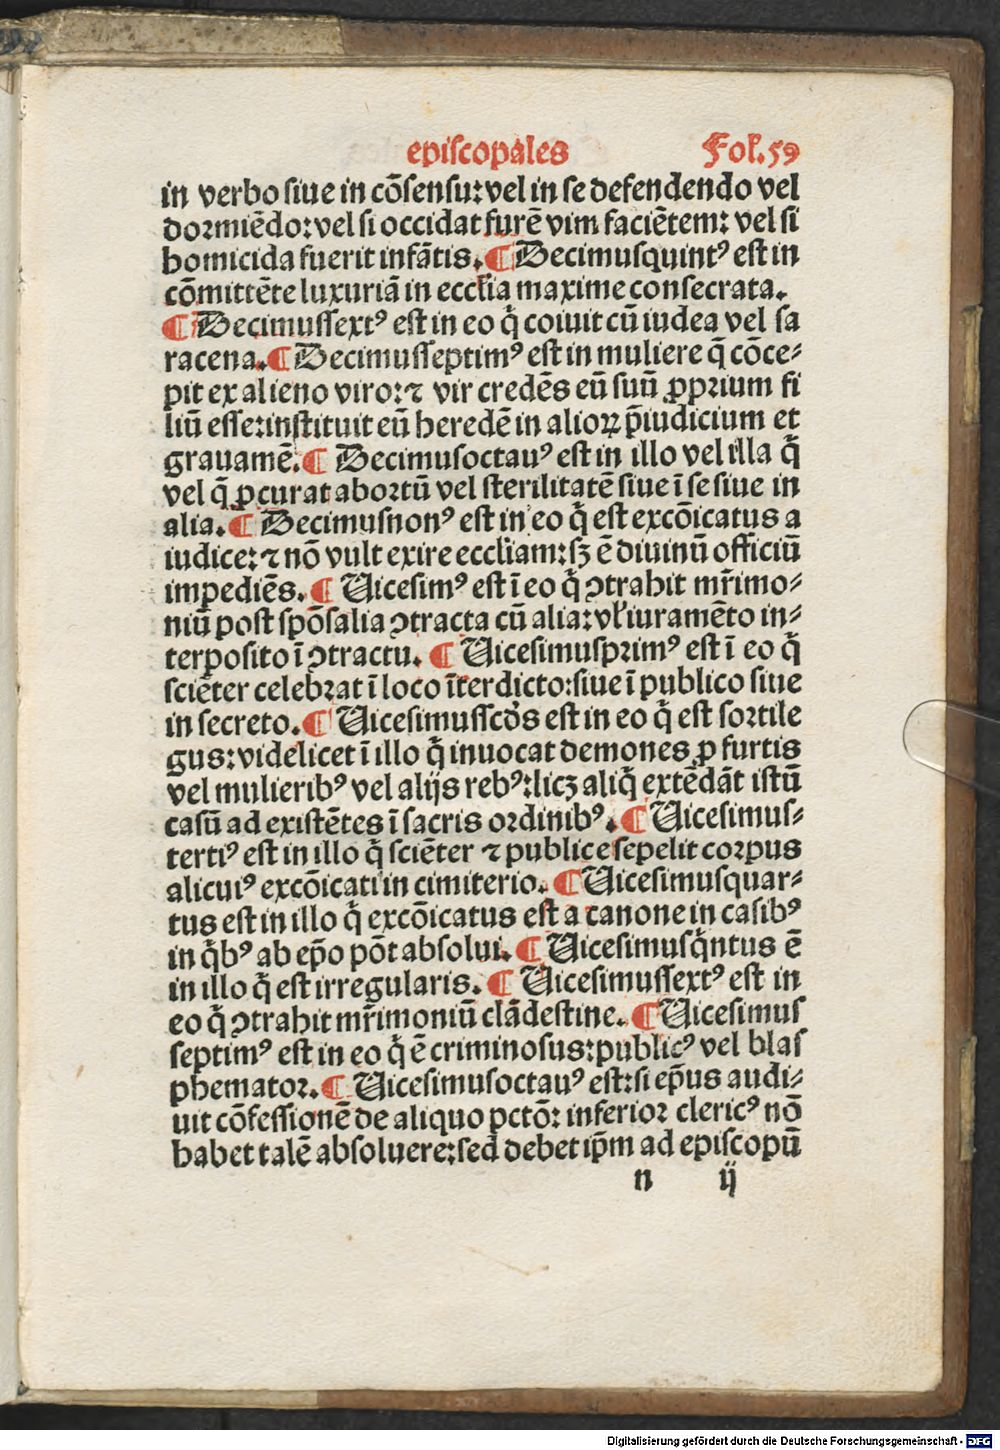 episcopales Fol. 59
in verbo siue in cõsensu: vel in se defendendo vel
dormiẽdo: vel si occidat furẽ vim faciẽtem: vel si
homicida fuerit infãtis. ¶ Decimusquintꝰ est in
cõmittẽte luxuriã in eccłia maxime consecrata.
¶ Decimussextꝰ est in eo q̃ coiuit cũ iudea vel sa
racena. ¶ Decimusseptimꝰ est in muliere q̃ cõce⸗
pit ex alieno viro: ⁊ vir credẽs eũ suũ ꝓprium fi
liũ esse: instituit eũ heredẽ in alioꝝ p̃iudicium et
grauamẽ. ¶ Decimusoctauꝰ est in illo vel illa q̃
vel q̃ ꝓcurat abortũ vel sterilitatẽ siue ĩ se siue in
alia. ¶ Decimusnonꝰ est in eo q̃ est excõicatus a
iudice: ⁊ nõ vult exire eccłiam: sꝫ ẽ diuinũ officiũ
impediẽs. ¶ Uicesimꝰ est ĩ eo q̃ ꝯtrahit mr̃imo⸗
niũ post spõsalia ꝯtracta cũ alia: vł iuramẽto in⸗
terposito ĩ ꝯtractu. ¶ Uicesimusprimꝰ est ĩ eo q̃
sciẽter celebrat ĩ loco ĩterdicto: siue ĩ publico siue
in secreto. ¶ Uicesimusscd̃s est in eo q̃ est sortile
gus: videlicet ĩ illo q̃ inuocat demones ꝓ furtis
vel mulieribꝰ vel alijs rebꝰ: licꝫ aliq̃ extẽdãt istũ
casũ ad existẽtes ĩ sacris ordinibꝰ. ¶ Uicesimus⸗
tertiꝰ est in illo q̃ sciẽter ⁊ publice sepelit corpus
alicuiꝰ excõicati in cimiterio. ¶ Uicesimusquar⸗
tus est in illo q̃ excõicatus est a canone in casibꝰ
in q̃bꝰ ab ep̃o põt absolui. ¶ Uicesimusq̃ntus ẽ
in illo q̃ est irregularis. ¶ Uicesimussextꝰ est in
eo q̃ ꝯtrahit mr̃imoniũ clãdestine. ¶ Uicesimus
septimꝰ est in eo q̃ ẽ criminosus: publicꝰ vel blas
phemator. ¶ Uicesimusoctauꝰ est: si ep̃us audi⸗
uit cõfessionẽ de aliquo pctõ: inferior clericꝰ nõ
habet talẽ absoluere: sed debet ip̃m ad episcopũ
n ij
Digitalisierung gefördert durch die Deutsche Forschungsgemeinschaft - DFG